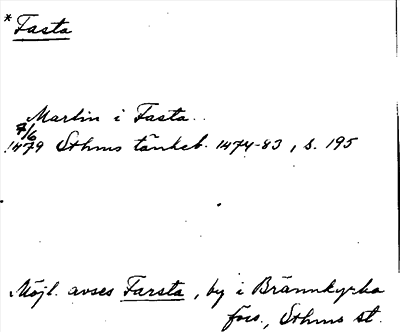 * Fasta
Martin i Fasta.
7/6
1479 Sthms tänkeb. 1474-83, s. 195
Möjl. avses Farsta, by i Brännkyrka
fors., Sthms st.